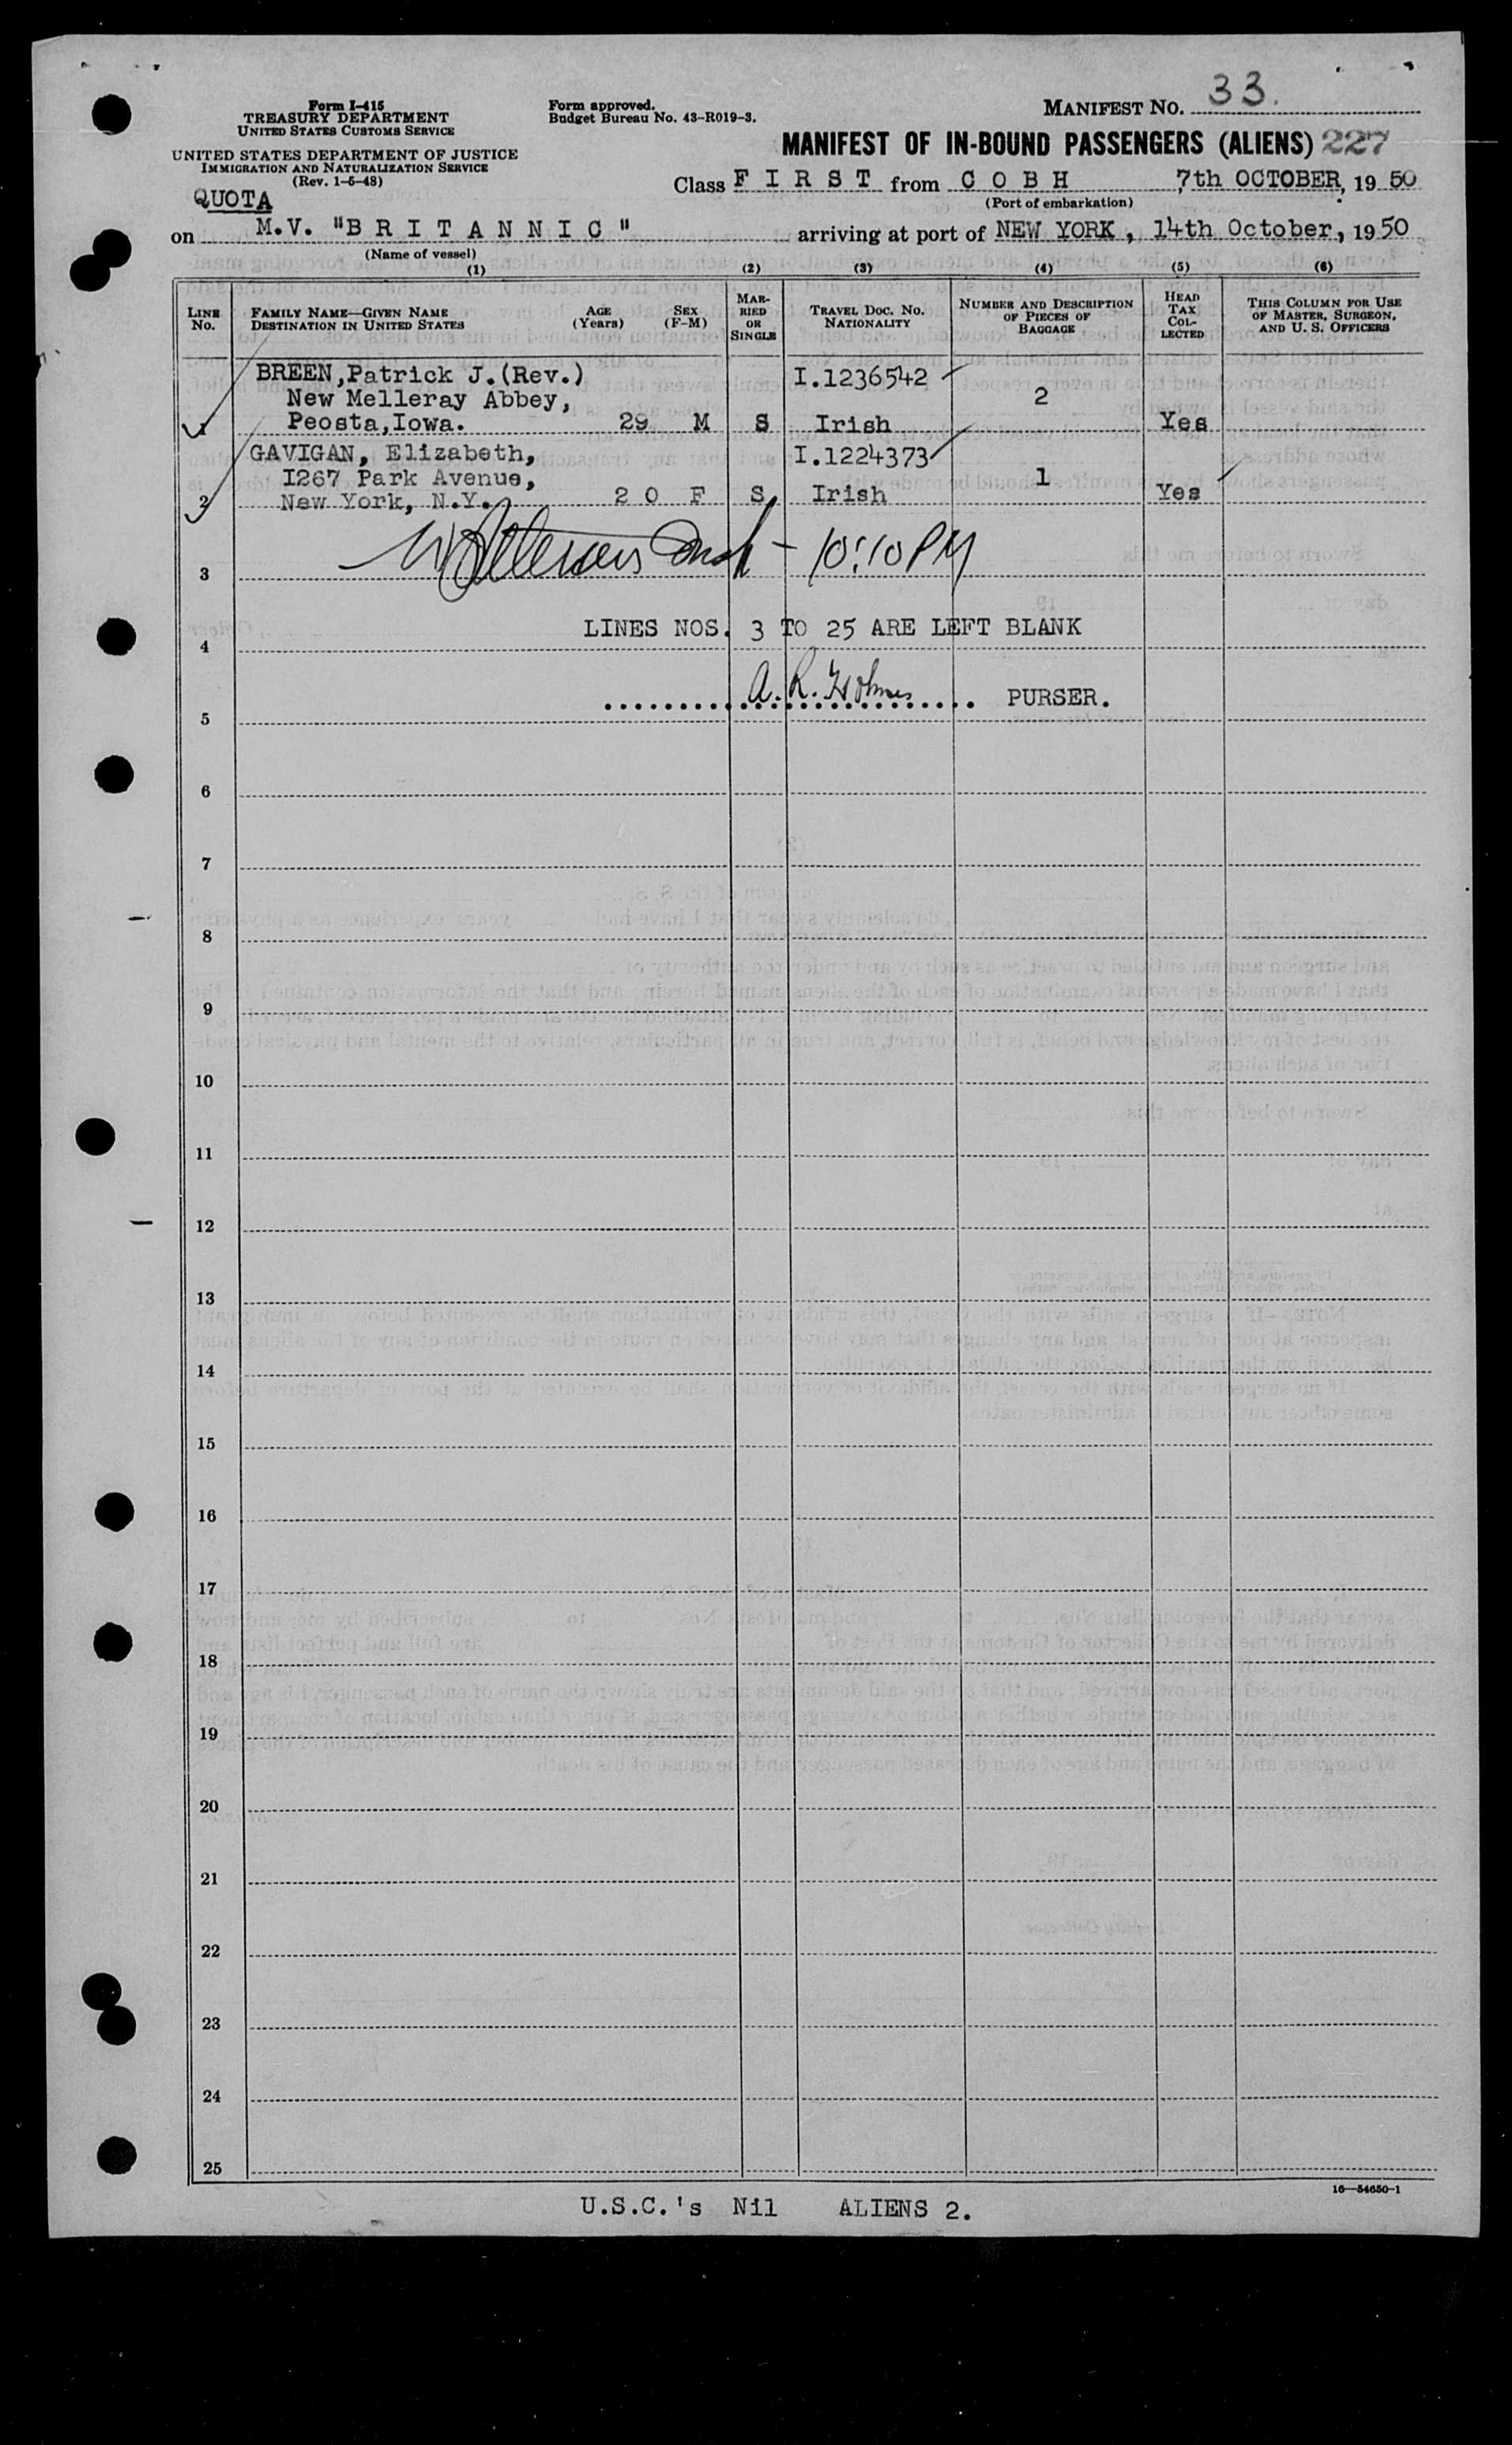 Form I-415
TREASURY DEPARTMENT
UNITED STATES CUSTOMS SERVICE
UNITED STATES DEPARTMENT OF JUSTICE
IMMIGRATION AND NATURALIZATION SERVICE
(Rev. 1-5-48)
Form approved.
Budget Bureau No. 43-R019-3.
MANIFEST No. 33.
MANIFEST OF IN-BOUND PASSENGERS (ALIENS) 227
QUOTA
Class F I R S T from C O B H 7th OCTOBER, 19 50
(Port of embarkation)
on M.V. "B R I T A N N I C" arriving at port of NEW YORK, 14th October, 19 50
(Name of vessel)
(1) (2) (3) (4) (5) (6)
LINE No. FAMILY NAME—GIVEN NAME DESTINATION IN UNITED STATES AGE (Years) SEX (F-M) MARRIED OR SINGLE TRAVEL DOC. NO. NATIONALITY NUMBER AND DESCRIPTION OF PIECES OF BAGGAGE HEAD TAX COLLECTED THIS COLUMN FOR USE OF MASTER, SURGEON, AND U. S. OFFICERS
BREEN, Patrick J. (Rev.) I.1236542
New Melleray Abbey, 2
1 Peosta, Iowa. 29 M S Irish Yes
GAVIGAN, Elizabeth, I.1224373
1267 Park Avenue, 1
2 New York, N.Y. 2 0 F S Irish Yes
3 10:10 PM
LINES NOS. 3 TO 25 ARE LEFT BLANK
4
A. R. Holmes PURSER.
5
6
7
8
9
10
11
12
13
14
15
16
17
18
19
20
21
22
23
24
25
16—54650-1
U.S.C.'s Nil ALIENS 2.